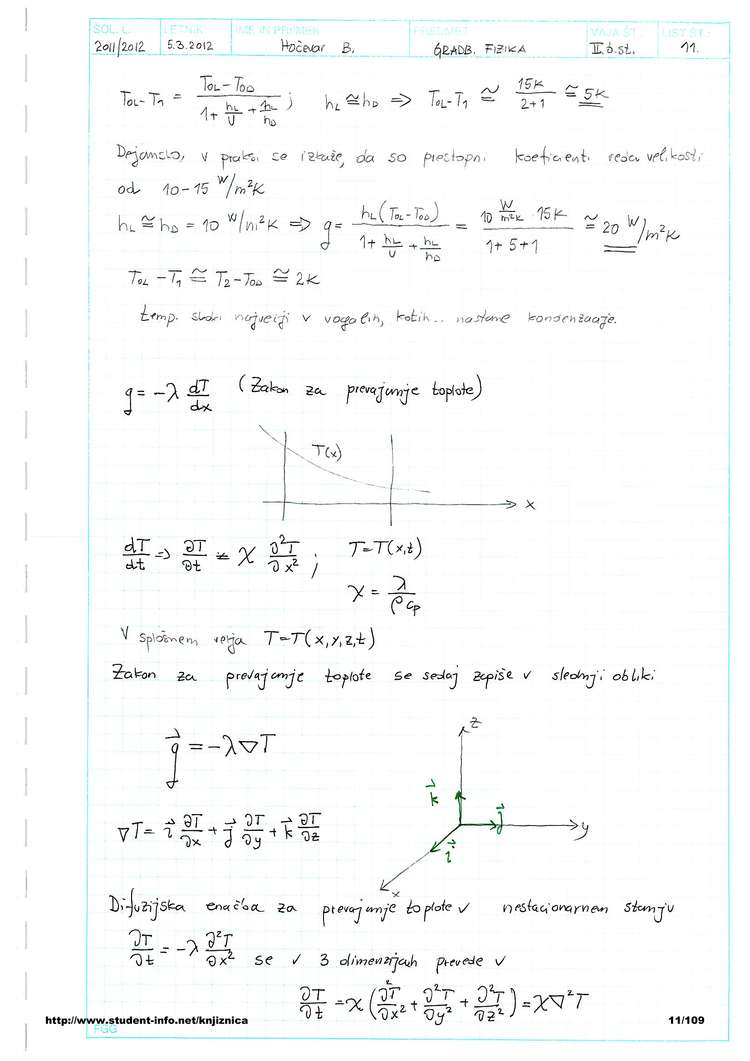 ŠOL. L. LETNIK IME IN PRIIMEK PREDMET VAJA ŠT.: LIST ŠT.:
2011/2012 5.3.2012 Hočevar B. GRADB. FIZIKA II. b. st. 11.
T_OL - T_1 = (T_OL - T_OD) / (1 + h_L/U + h_L/h_D) ; h_L ≅ h_D => T_OL - T_1 ≅ 15K / (2+1) ≅ 5K
Dejansko, v praksi se izkaže, da so prestopni koeficienti reda velikosti
od 10-15 W/m²K
h_L ≅ h_D = 10 W/m²K => q = h_L(T_OL - T_OD) / (1 + h_L/U + h_L/h_D) = (10 W/m²K · 15K) / (1+5+1) ≅ 20 W/m²K
T_OL - T_1 ≅ T_2 - T_OD ≅ 2K
temp. skoki največji v vogalih, kotih.. nastane kondenzacije.
q = -λ dT/dx (Zakon za prevajanje toplote)
T(x)
x
dT/dt => ∂T/∂t = χ ∂²T/∂x² ; T=T(x,t)
χ = λ / ρ c_p
V splošnem velja T=T(x,y,z,t)
Zakon za prevajanje toplote se sedaj zapiše v slednji obliki
z
q⃗ = -λ∇T
k⃗
j⃗
y
∇T = i⃗ ∂T/∂x + j⃗ ∂T/∂y + k⃗ ∂T/∂z
i⃗
x
Difuzijska enačba za prevajanje toplote v nestacionarnem stanju
∂T/∂t = -λ ∂²T/∂x² se v 3 dimenzijah prevede v
∂T/∂t = χ (∂²T/∂x² + ∂²T/∂y² + ∂²T/∂z²) = χ∇²T
http://www.student-info.net/knjiznica 11/109
FGG